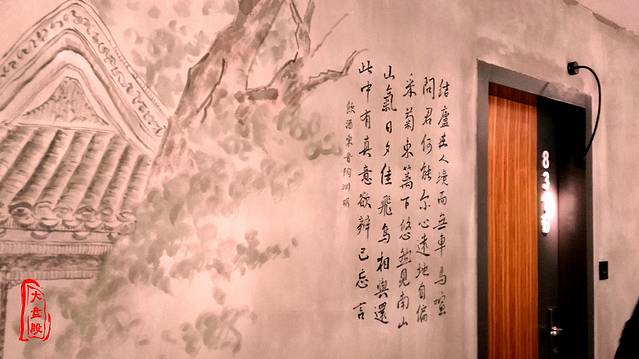 結廬在人境而無車馬喧
問君何能尔心遠地自偏
采菊東篱下悠然見南山
山氣日夕佳飛鳥相與還
此中有真意欲辨已忘言
飲酒東晋陶渊明
83
大盘殷